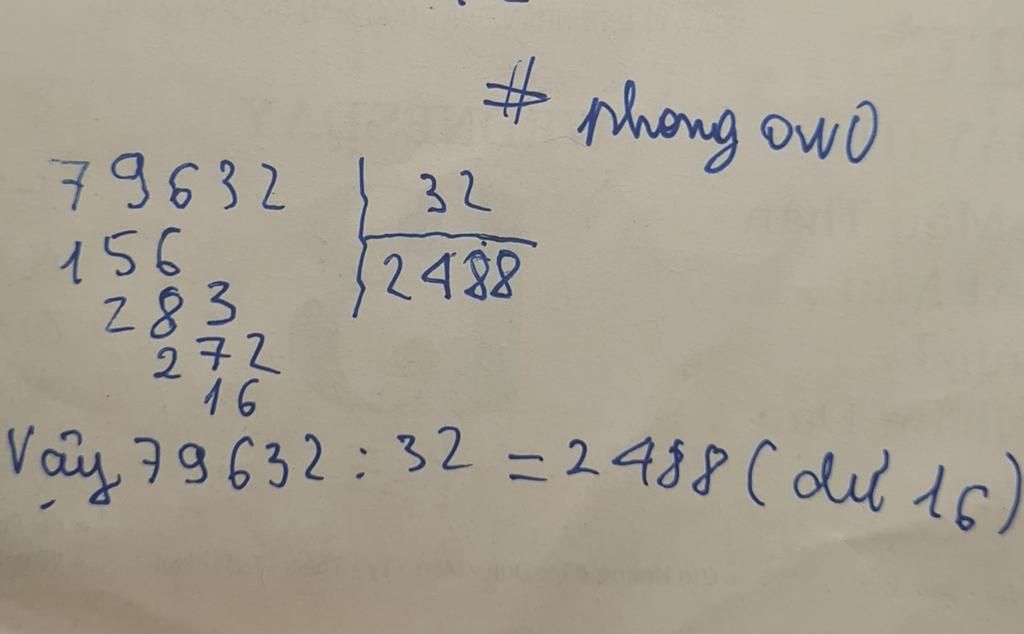 # phong owo
79632 32
156 2488
283
272
16
Vậy 79632 : 32 = 2488 ( dư 16 )